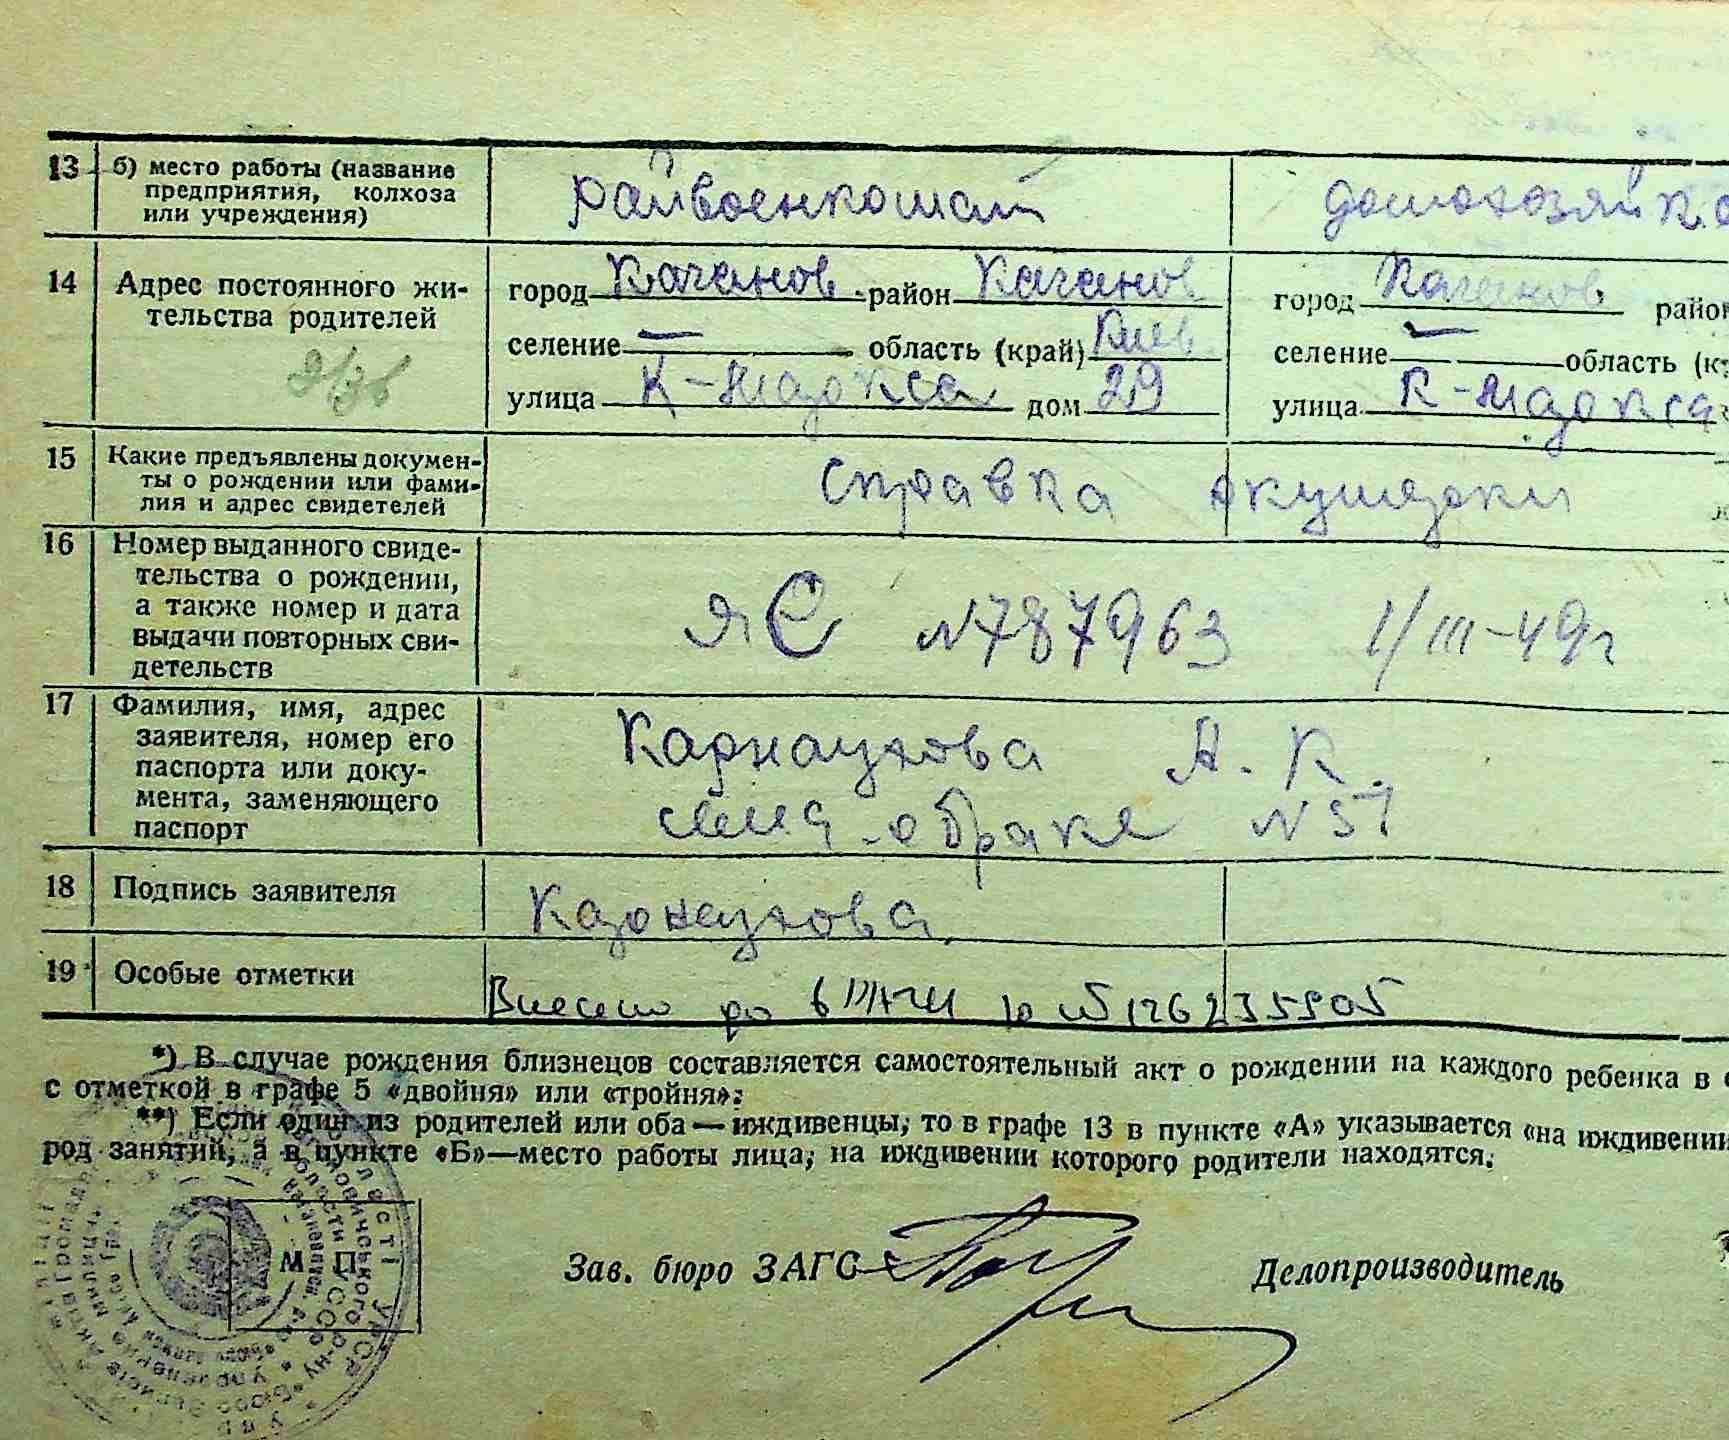 13 б) место работы (название
предприятия, колхоза
или учреждения)
райвоенкомат
домохозяйка
14 Адрес постоянного жи-
тельства родителей
город Каганов. район Каганов
селение — область (край) Киев
улица К-Маркса дом 29
город Каганов. район
селение — область (к
улица К-Маркса
15 Какие предъявлены докумен-
ты о рождении или фами-
лия и адрес свидетелей
справка акушерки
16 Номер выданного свиде-
тельства о рождении,
а также номер и дата
выдачи повторных сви-
детельств
ЯС №787963 1/III-49г
17 Фамилия, имя, адрес
заявителя, номер его
паспорта или доку-
мента, заменяющего
паспорт
Карнаухова А. К.
о браке №51
18 Подпись заявителя
Карнаухова
19 Особые отметки
Внесено до
*) В случае рождения близнецов составляется самостоятельный акт о рождении на каждого ребенка в о
с отметкой в графе 5 «двойня» или «тройня»;
**) Если один из родителей или оба — иждивенцы, то в графе 13 в пункте «А» указывается «на иждивении
род занятий, а в пункте «Б»—место работы лица, на иждивении которого родители находятся.
М П.
Зав. бюро ЗАГС
Делопроизводитель